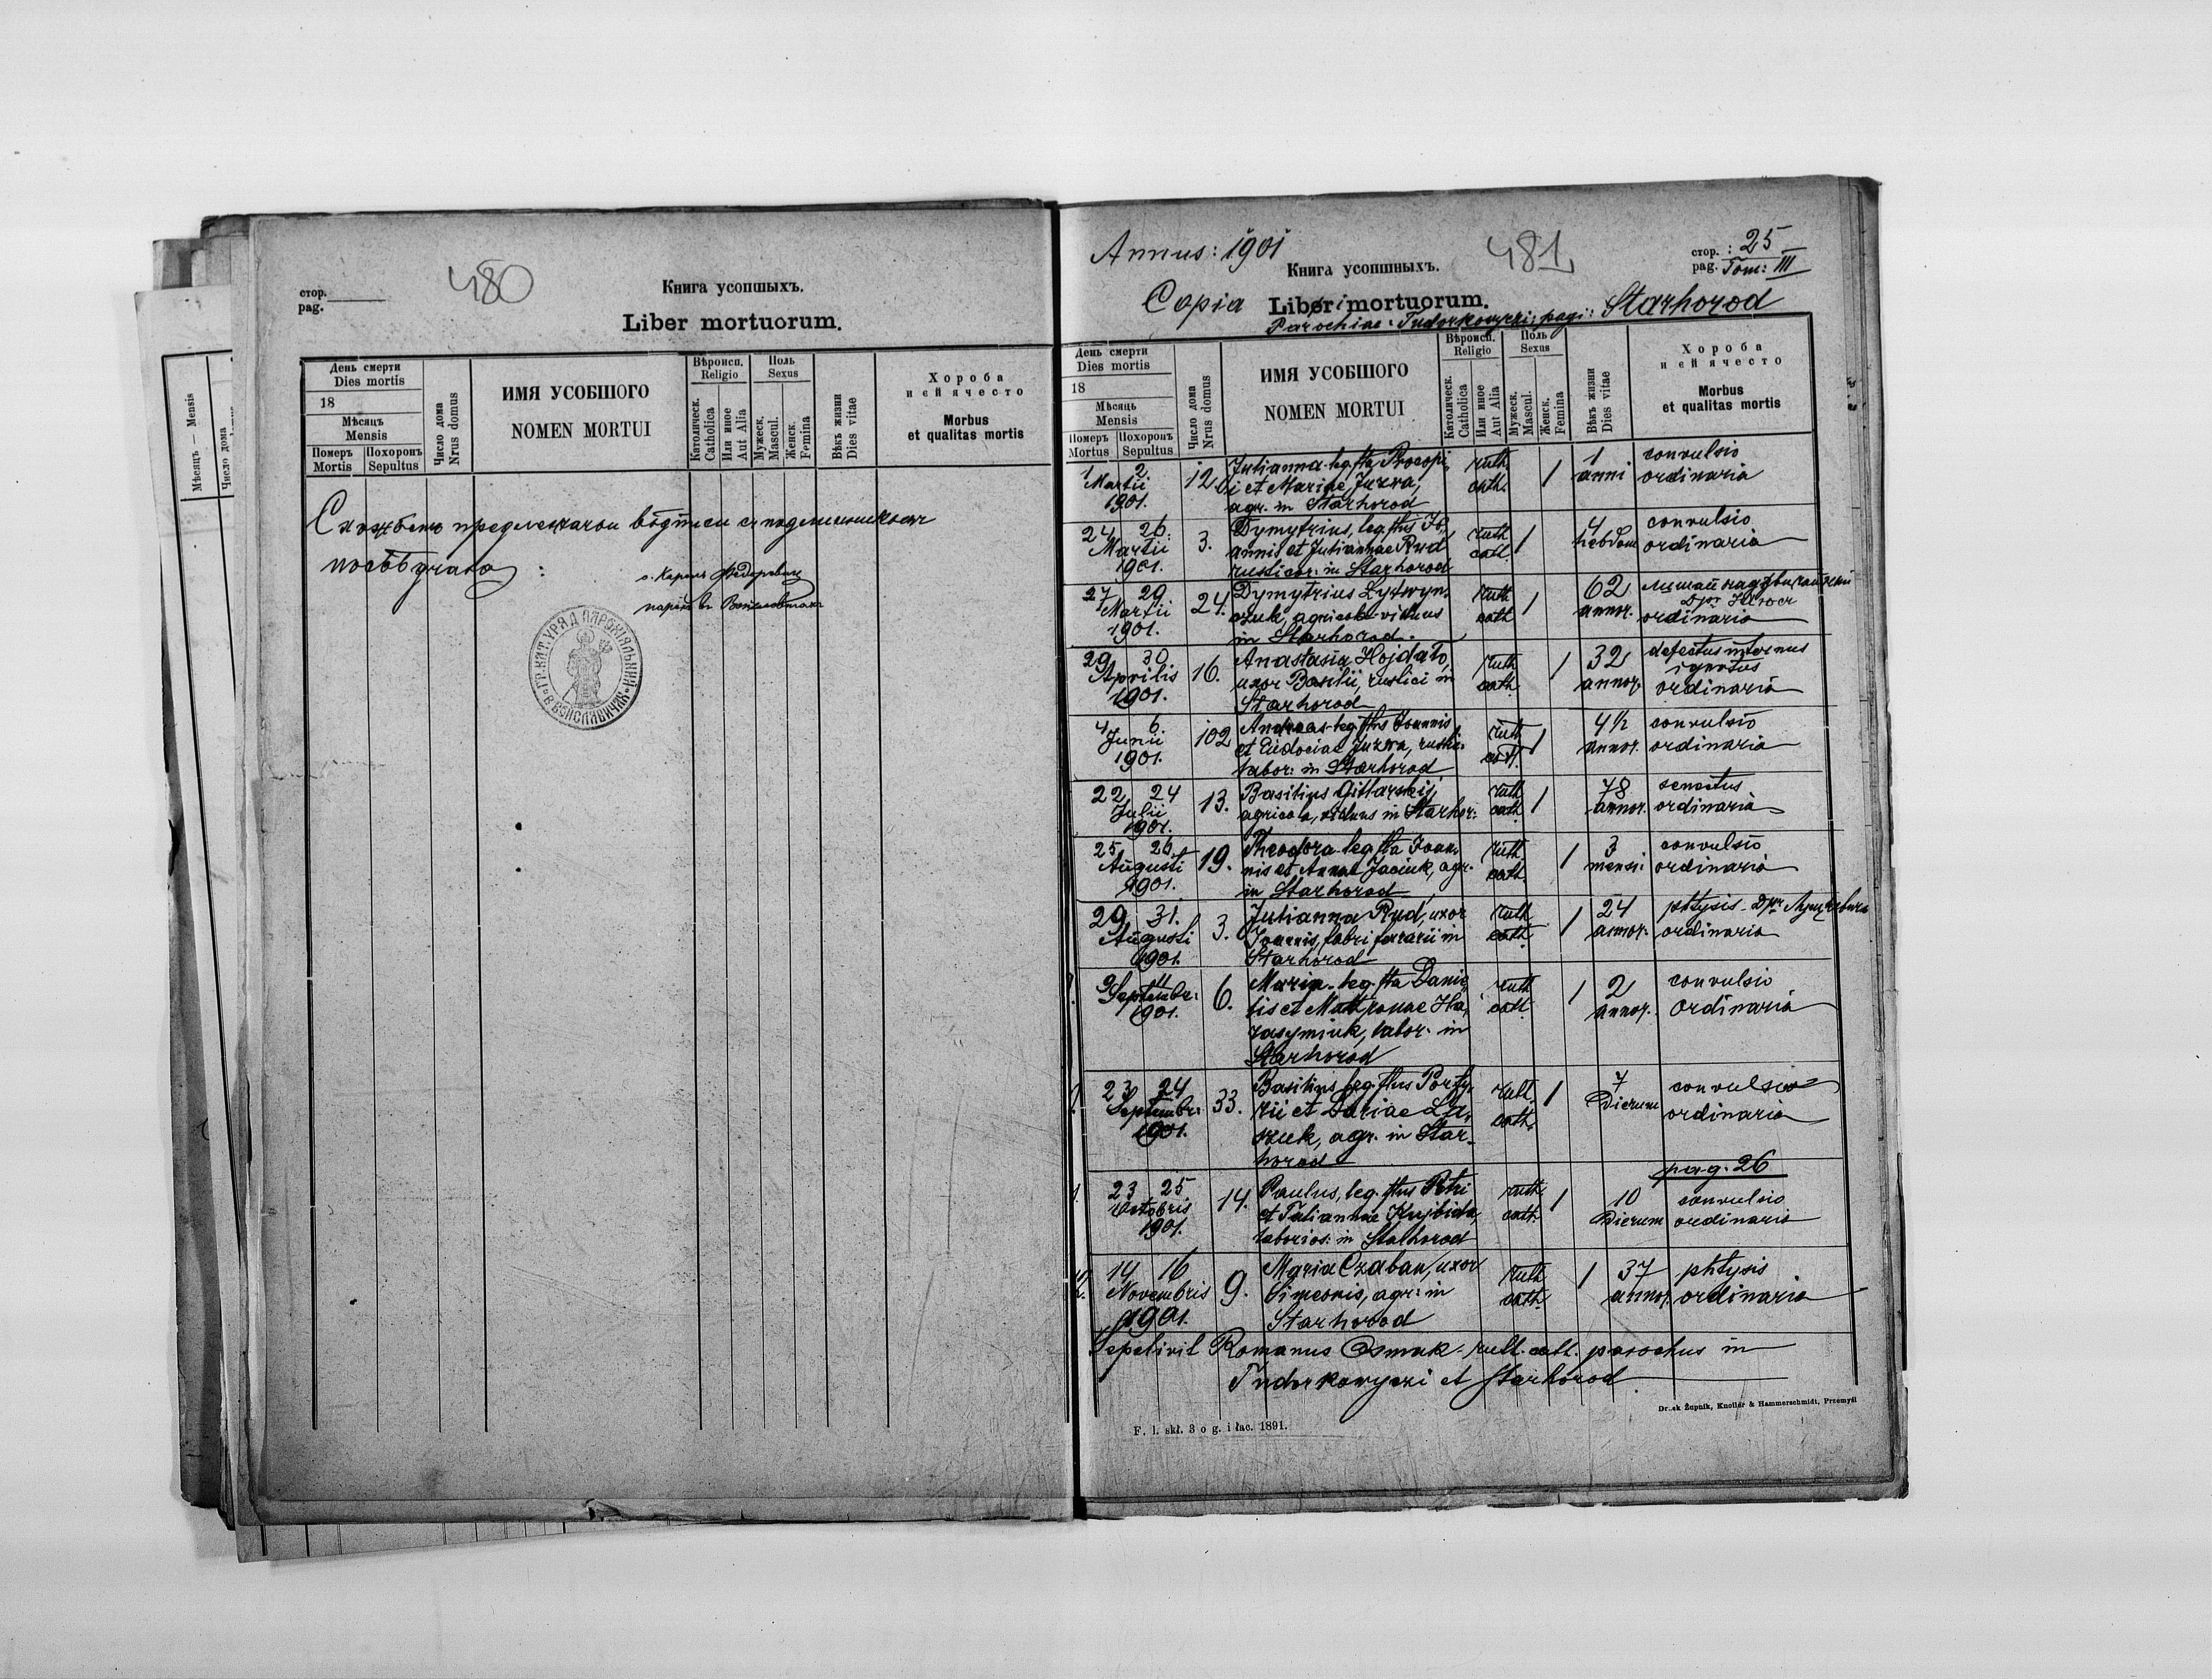 480
стор.
pag.
Книга усопшыхъ.
Liber mortuorum.
День смерти
Dies mortis
18
Мѣсяцъ
Mensis
Померъ
Mortis
Похоронъ
Sepultus
Число дома
Nrus domus
ИМЯ УСОБШОГО
NOMEN MORTUI
Вѣроисп.
Religio
Католическ.
Catholica
Или иное
Aut Alia
Полъ
Sexus
Мужеск.
Mascul.
Женск.
Femina
Вѣкъ жизни
Dies vitae
Хороба
и ей ячесто
Morbus
et qualitas mortis
Мѣсяцъ — Mensis
Число дома
Annus: 1901
481
стор. : 25
pag. Tom: III
Книга усопшныхъ.
Copia Libri mortuorum.
Parochiae: Tudorkowyczi: pagi: Starhorod
День смерти
Dies mortis
18
Мѣсяць
Mensis
Померъ
Mortus
Похоронъ
Sepultus
Число дома
Nrus domus
ИМЯ УСОБШОГО
NOMEN MORTUI
Вѣроисп.
Religio
Католическ.
Catholica
Или иное
Aut Alia
Поль
Sexus
Мужеск.
Mascul.
Женск.
Femina
Вѣкъ жизни
Dies vitae
Хороба
и ей ячесто
Morbus
et qualitas mortis
1 2 Martii 1901. 12. Julianna leg. fta Procopi
i et Mariae Jurwa,
agr. in Starhorod
ruth. cath. 1 1 anni convulsio ordinaria
24 26 Martii 1901. 3. Dymytrius, leg. ftus Jo,
annis et Juliannae Rud
rusticor: in Starhorod
ruth cath 1 4 hebdom convulsio ordinaria
27 29 Martii 1901. 24. Dymytrius Lytwyn,
czuk, agricola viduus
in Starhorod.
ruth cath 1 62 annor. ordinaria
29 30 Aprilis 1901. 16. Anastasia Hojdalo,
uxor Basilii, rustici in
Starhorod
ruth cath 1 32 annor. defectus internus
ignotus
ordinaria
4 6. Junii 1901. 102 Andreas leg. ftus Joannis
et Eudociae Jurwa, rusti.
labor: in Starhorod
ruth cath. 1 4½ annor. convulsio ordinaria
22 24 Julii 1901. 13. Basilius Gillarskij,
agricola, viduus in Starhor:
ruth cath 1 78 annor. senectus ordinaria
25 26 Augusti 1901. 19. Theodora leg. fta Joan,
nis et Annae Jaciuk, agr.
in Starhorod
ruth cath. 1 3 mensi: convulsio ordinaria
29 31. Augusti 1901. 3. Julianna Rud, uxor
Joannis, fabri ferrarii in
Starhorod
ruth cath 1 24 annor. phtysis ordinaria
9 11 Septembr: 1901. 6. Maria leg. fta Danie
lis et Matronae Ha,
rasymiuk, labor. in
Starhorod
ruth cath. 1 2 annor. convulsio ordinaria
23 24 Septembr: 1901. 33. Basilius leg. ftus Porfy,
rii et Dariae La,
szuk, agr. in Star-
horod
ruth. cath. 1 7 Dierum convulsio ordinaria
pag. 26
23 25 Octobris 1901. 14. Paulus, leg. ftus Petri
et Tatiannae Kujbida,
laborios: in Starhorod
ruth. cath. 1 10 Dierum convulsio ordinaria
12. 14 16 Novembris 1901. 9. Maria Czaban, uxor
Simeonis, agr: in
Starhorod
ruth cath 1 37 annor. phtysis ordinaria
Sepelivit Romanus Osmak ruth. cath. parochus in
Tudorkowyczi et Starhorod
F. l. skł. 3 o g. i łac. 1891.
Druk Żupnik, Knoller & Hammerschmidt, Przemyśl